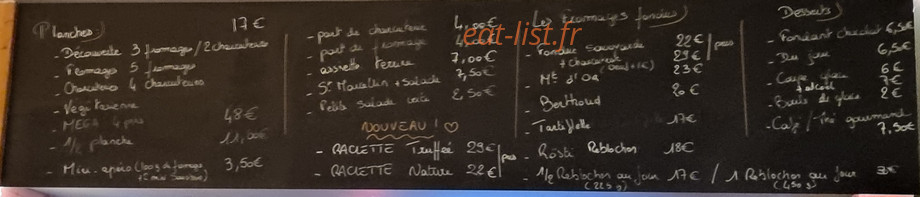 Planches 17€
- Découverte 3 fromages / 2 charcuteries
- Fromages 5 fromages
- Charcuteries 4 charcuteries
- Végétarienne
- MEGA 4 pers 48€
- 1/2 planche 11,00€
- Mini apéro (100g de fromage 3,50€
- part de charcuterie 4,00€
- part de fromage
- assiette terrine 7,00€
- St Marcellin + Salade 7,50€
- Petite Salade verte 2,50€
NOUVEAU ! ♡
- RACLETTE Truffée 29€ / pers
- RACLETTE Nature 22€
eat-list.fr
Les Fromages fondus
- Fondue Savoyarde 22€ / pers
+ Charcuterie 29€
- Mt d'Or 23€
- Berthoud 20€
- Tartiflette 17€
- Rösti Reblochon 18€
- 1/2 Reblochon au four 17€ / 1 Reblochon au four
(225g) (450g)
Desserts
- Fondant chocolat 6,5€
- Du jour 6,5€
- Coupe glacée 6€
+ alcool 7€
- Boule de glace 2€
- Café / Thé gourmand
7,50€